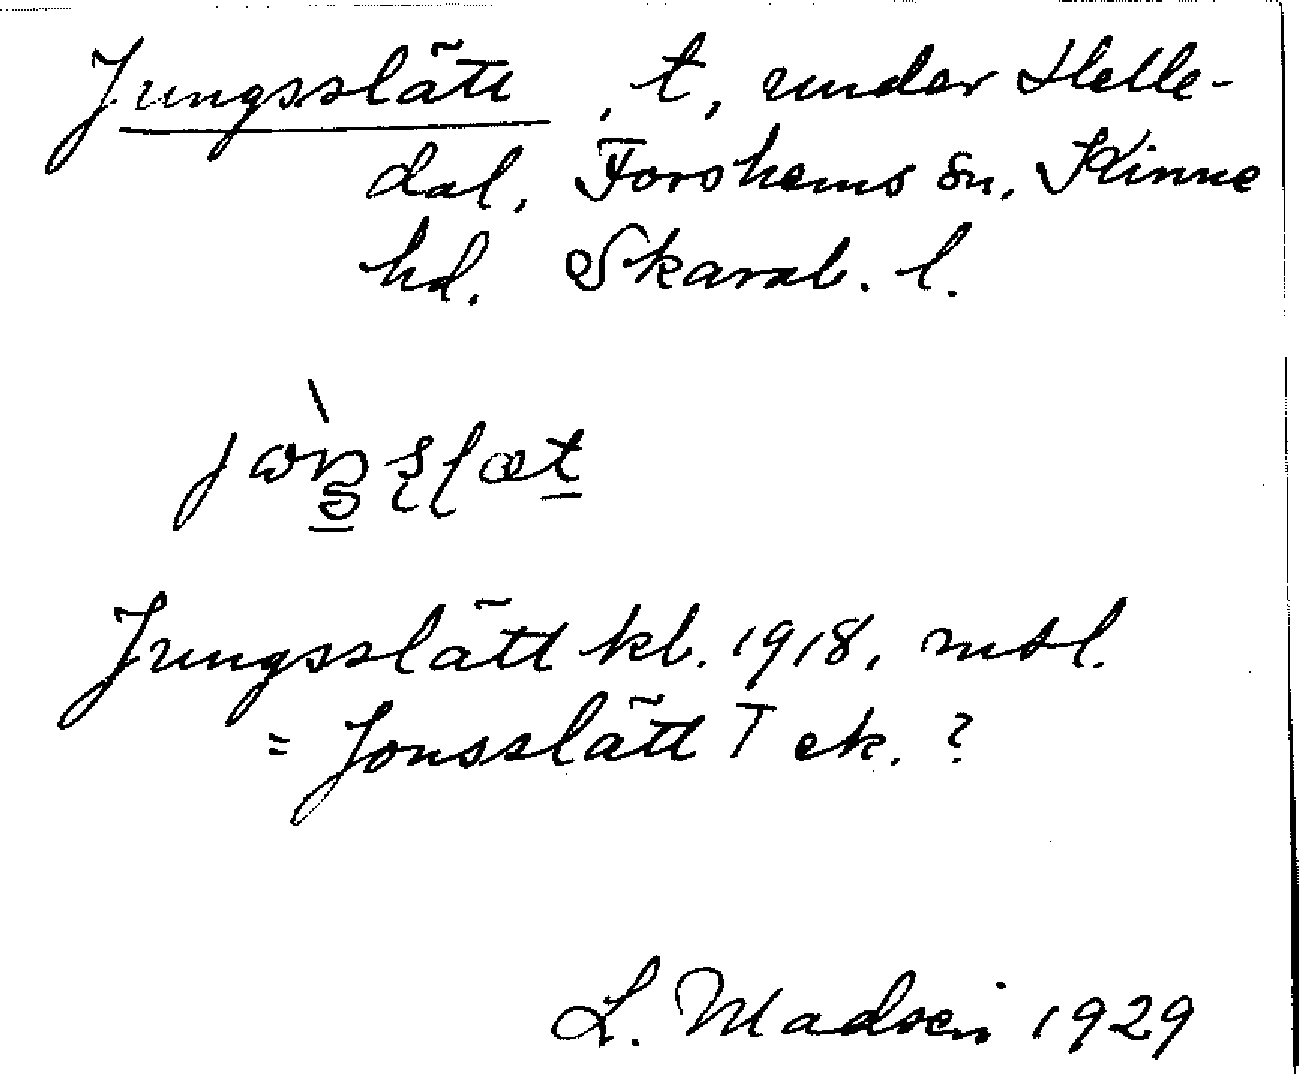 Jungsslätt, t, under Helle-
dal, Forshems sn. Kinne
hd. Skarab. l.
Jungsslätt kb. 1918, mtl.
= Jonsslätt T ek. ?
L. Madsén 1929